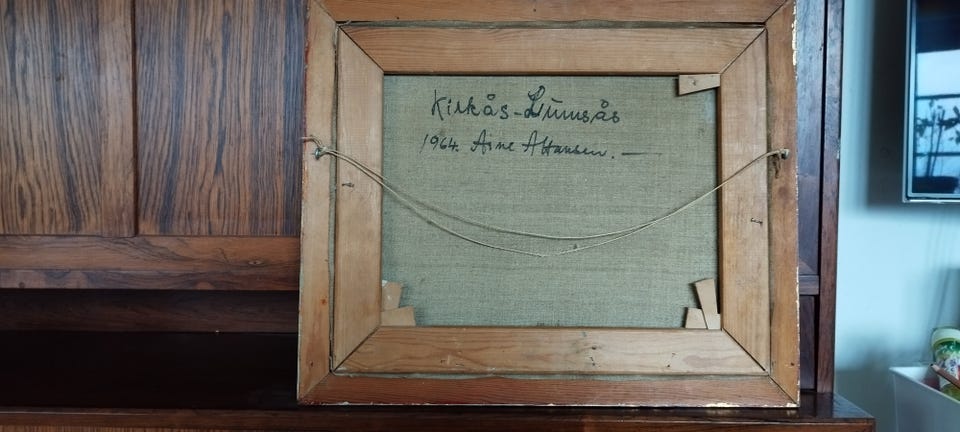 Kirkås-Linnsås
1964. Arne A Hansen. —